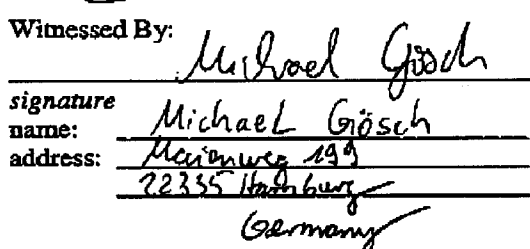 Witnessed By:
Michael Gösch
signature
name: Michael Gösch
address: Marienweg 199
22335 Hamburg
Germany